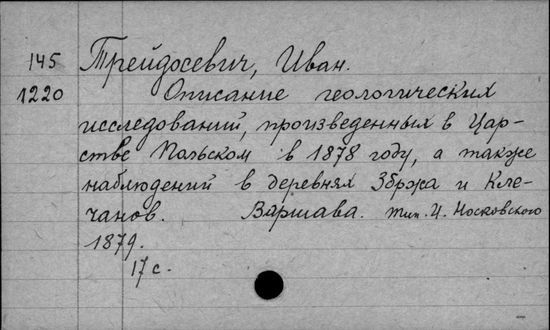 145 Трейдосевич, Иван.
1220 Описание геологических
исследований, произведенных в Цар-
стве Польском в 1878 году, а также
наблюдений в деревнях Збржа и Кле-
чанов. Варшава. тип. И. Носковского
1879.
17 с.